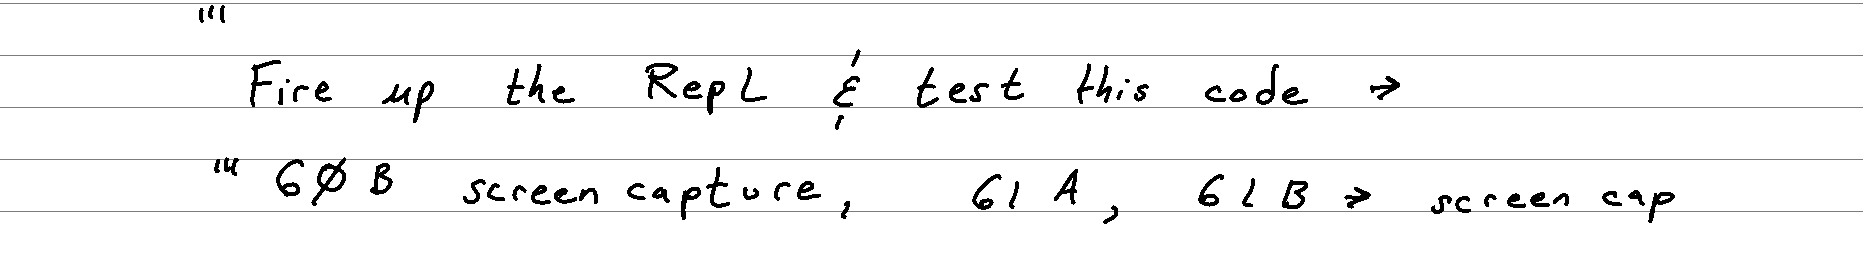 '''
Fire up the RepL & test this code →
''' 60B screen capture, 61A, 61B → screen cap